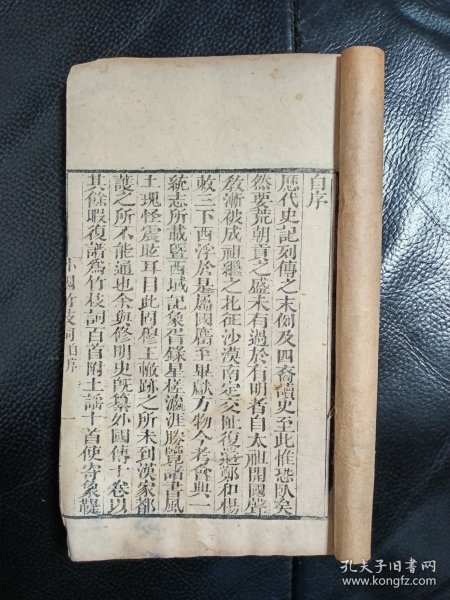 自序
歷代史記列傳之末例及四裔讀史至此惟恐臥矣
然要荒朝貢之盛未有過於有明者自太祖開國聲
敎漸被成祖繼之北征沙漠南定交阯復遣鄭和楊
敕三下西浮於是屬國麕至畢獻方物今考會典一
統志所載曁西域記象胥錄星槎瀛涯勝覽諸書風
土瑰怪震眩耳目此固穆王轍跡之所未到漢家都
護之所不能通也余與修明史旣纂外國傳十卷以
其餘暇復譜為竹枝詞百首附土謠十首使寄象鞮
外國竹枝詞自序
一
孔夫子旧书网
www.kongfz.com